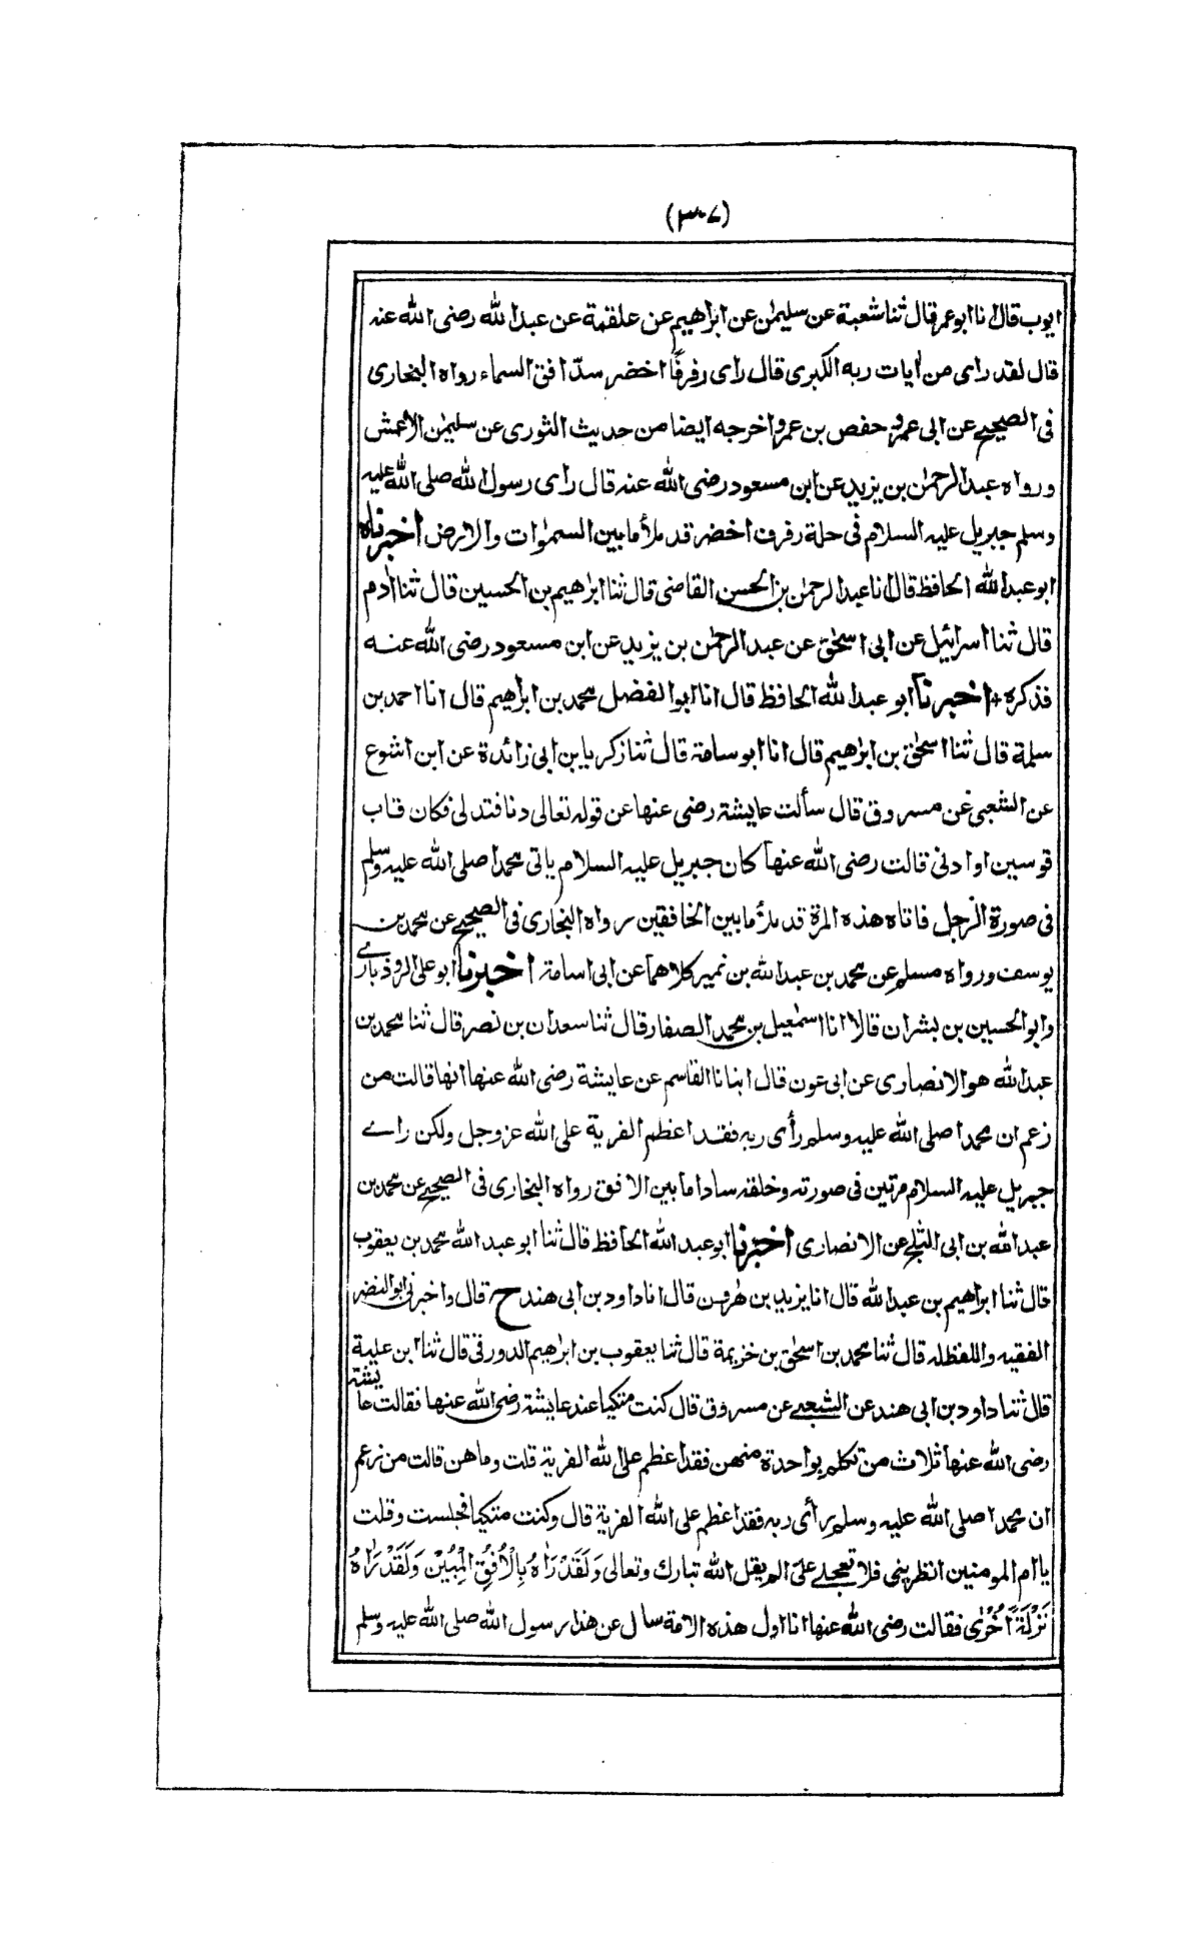 (٣٠٧)
ايوب قال انا ابو عمر قال ثنا شعبة عن سليمٰن عن ابرٰاهيم عن علقمة عن عبد الله رضى الله عنه
قال لقد راى من اٰيات ربه الكبرى قال راى رفرفًا اخضر سدّ افق السماء رواه البخارى
فى الصحيح عن ابى عمرو حفص بن عمرو اخرجه ايضا من حديث الثورى عن سليمٰن الاعمش
ورواه عبد الرحمٰن بن يزيد عن ابن مسعود رضى الله عنه قال راى رسول الله صلى الله عليه
وسلم جبريل عليه السلام فى حلة رفرف اخضر قد ملأ ما بين السمٰوات والارض اخبرناه
ابو عبد الله الحافظ قال انا عبد الرحمٰن بن الحسن القاضى قال ثنا ابرٰهيم بن الحسين قال ثنا اٰدم
قال ثنا اسرائيل عن ابى اسحٰق عن عبد الرحمٰن بن يزيد عن ابن مسعود رضى الله عنه
فذكره + اخبرنا ابو عبد الله الحافظ قال انا ابو الفضل محمد بن ابرٰاهيم قال انا احمد بن
سلمة قال ثنا اسحٰق بن ابرٰهيم قال انا ابو سامة قال ثنا زكريا بن ابى زائدة عن ابن اشوع
عن الشعبى عن مسروق قال سألت عايشة رضى عنها عن قوله تعالى دنا فتدلى فكان قاب
قوسين او ادنى قالت رضى الله عنها كان جبريل عليه السلام ياتى محمدا صلى الله عليه وسلم
فى صورة الرجل فاتاه هذه المرة قد ملأ ما بين الخافقين رواه البخارى فى الصحيح عن محمد بن
يوسف ورواه مسلم عن محمد بن عبد الله بن نمير كلاهما عن ابى اسامة اخبرنا ابو على الروذبارے
وابو الحسين بن بشران قالا انا اسمٰعيل بن محمد الصفار قال ثنا سعدان بن نصر قال ثنا محمد بن
عبد الله هو الانصارى عن ابى عون قال انبانا القاسم عن عايشة رضى الله عنها انها قالت من
زعم ان محمدا صلى الله عليه وسلم رأى ربه فقد اعظم الفرية على الله عز وجل ولكن راے
جبريل عليه السلام مرتين فى صورته وخلقه سادا ما بين الافق رواه البخارى فى الصحيح عن محمد بن
عبد الله بن ابى الثلج عن الانصارى اخبرنا ابو عبد الله الحافظ قال ثنا ابو عبد الله محمد بن يعقوب
قال ثنا ابراهيم بن عبد الله قال انا يزيد بن هٰرون قال انا داود بن ابى هند ح قال واخبرنى ابو النضر
الفقيه واللفظ له قال ثنا محمد بن اسحٰق بن خزيمة قال ثنا يعقوب بن ابرٰهيم الدورقى قال ثنا ابن علية
قال ثنا داود بن ابى هند عن الشعبے عن مسروق قال كنت متكيا عند عايشة رضى الله عنها فقالت عايشة
رضى الله عنها ثلاث من تكلم بواحدة منهن فقد اعظم على الله الفرية قلت وما هن قالت من زعم
ان محمدا صلى الله عليه وسلم رأى ربه فقد اعظم على الله الفرية قال وكنت متكيا فجلست وقلت
يا ام المومنين انظرينى فلا تعجلے علىّ الم يقل الله تبارك وتعالى وَلَقَدْ رَاٰهُ بِالْاُفُقِ الْمُبِيْنِ وَلَقَدْ رَاٰهُ
نَزْلَةً اُخْرٰى فقالت رضى الله عنها انا اول هذه الامة سال عن هذا رسول الله صلى الله عليه وسلم